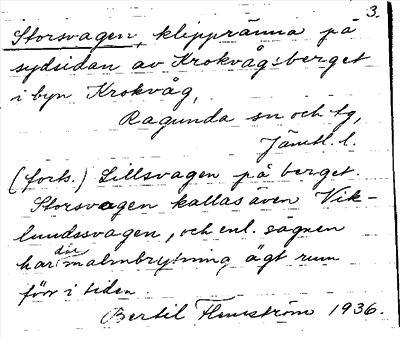 3.
Storsvagen, klippränna på
sydsidan av Krokvågsberget
i byn Krokvåg,
Ragunda sn och tg,
Jämtl. l.
(forts.) Lillsvagen på berget.
Storsvagen kallas även Vik-
lundssvagen, och enl. sägnen
har där malmbrytning ägt rum
förr i tiden
Bertil Flemström 1936.